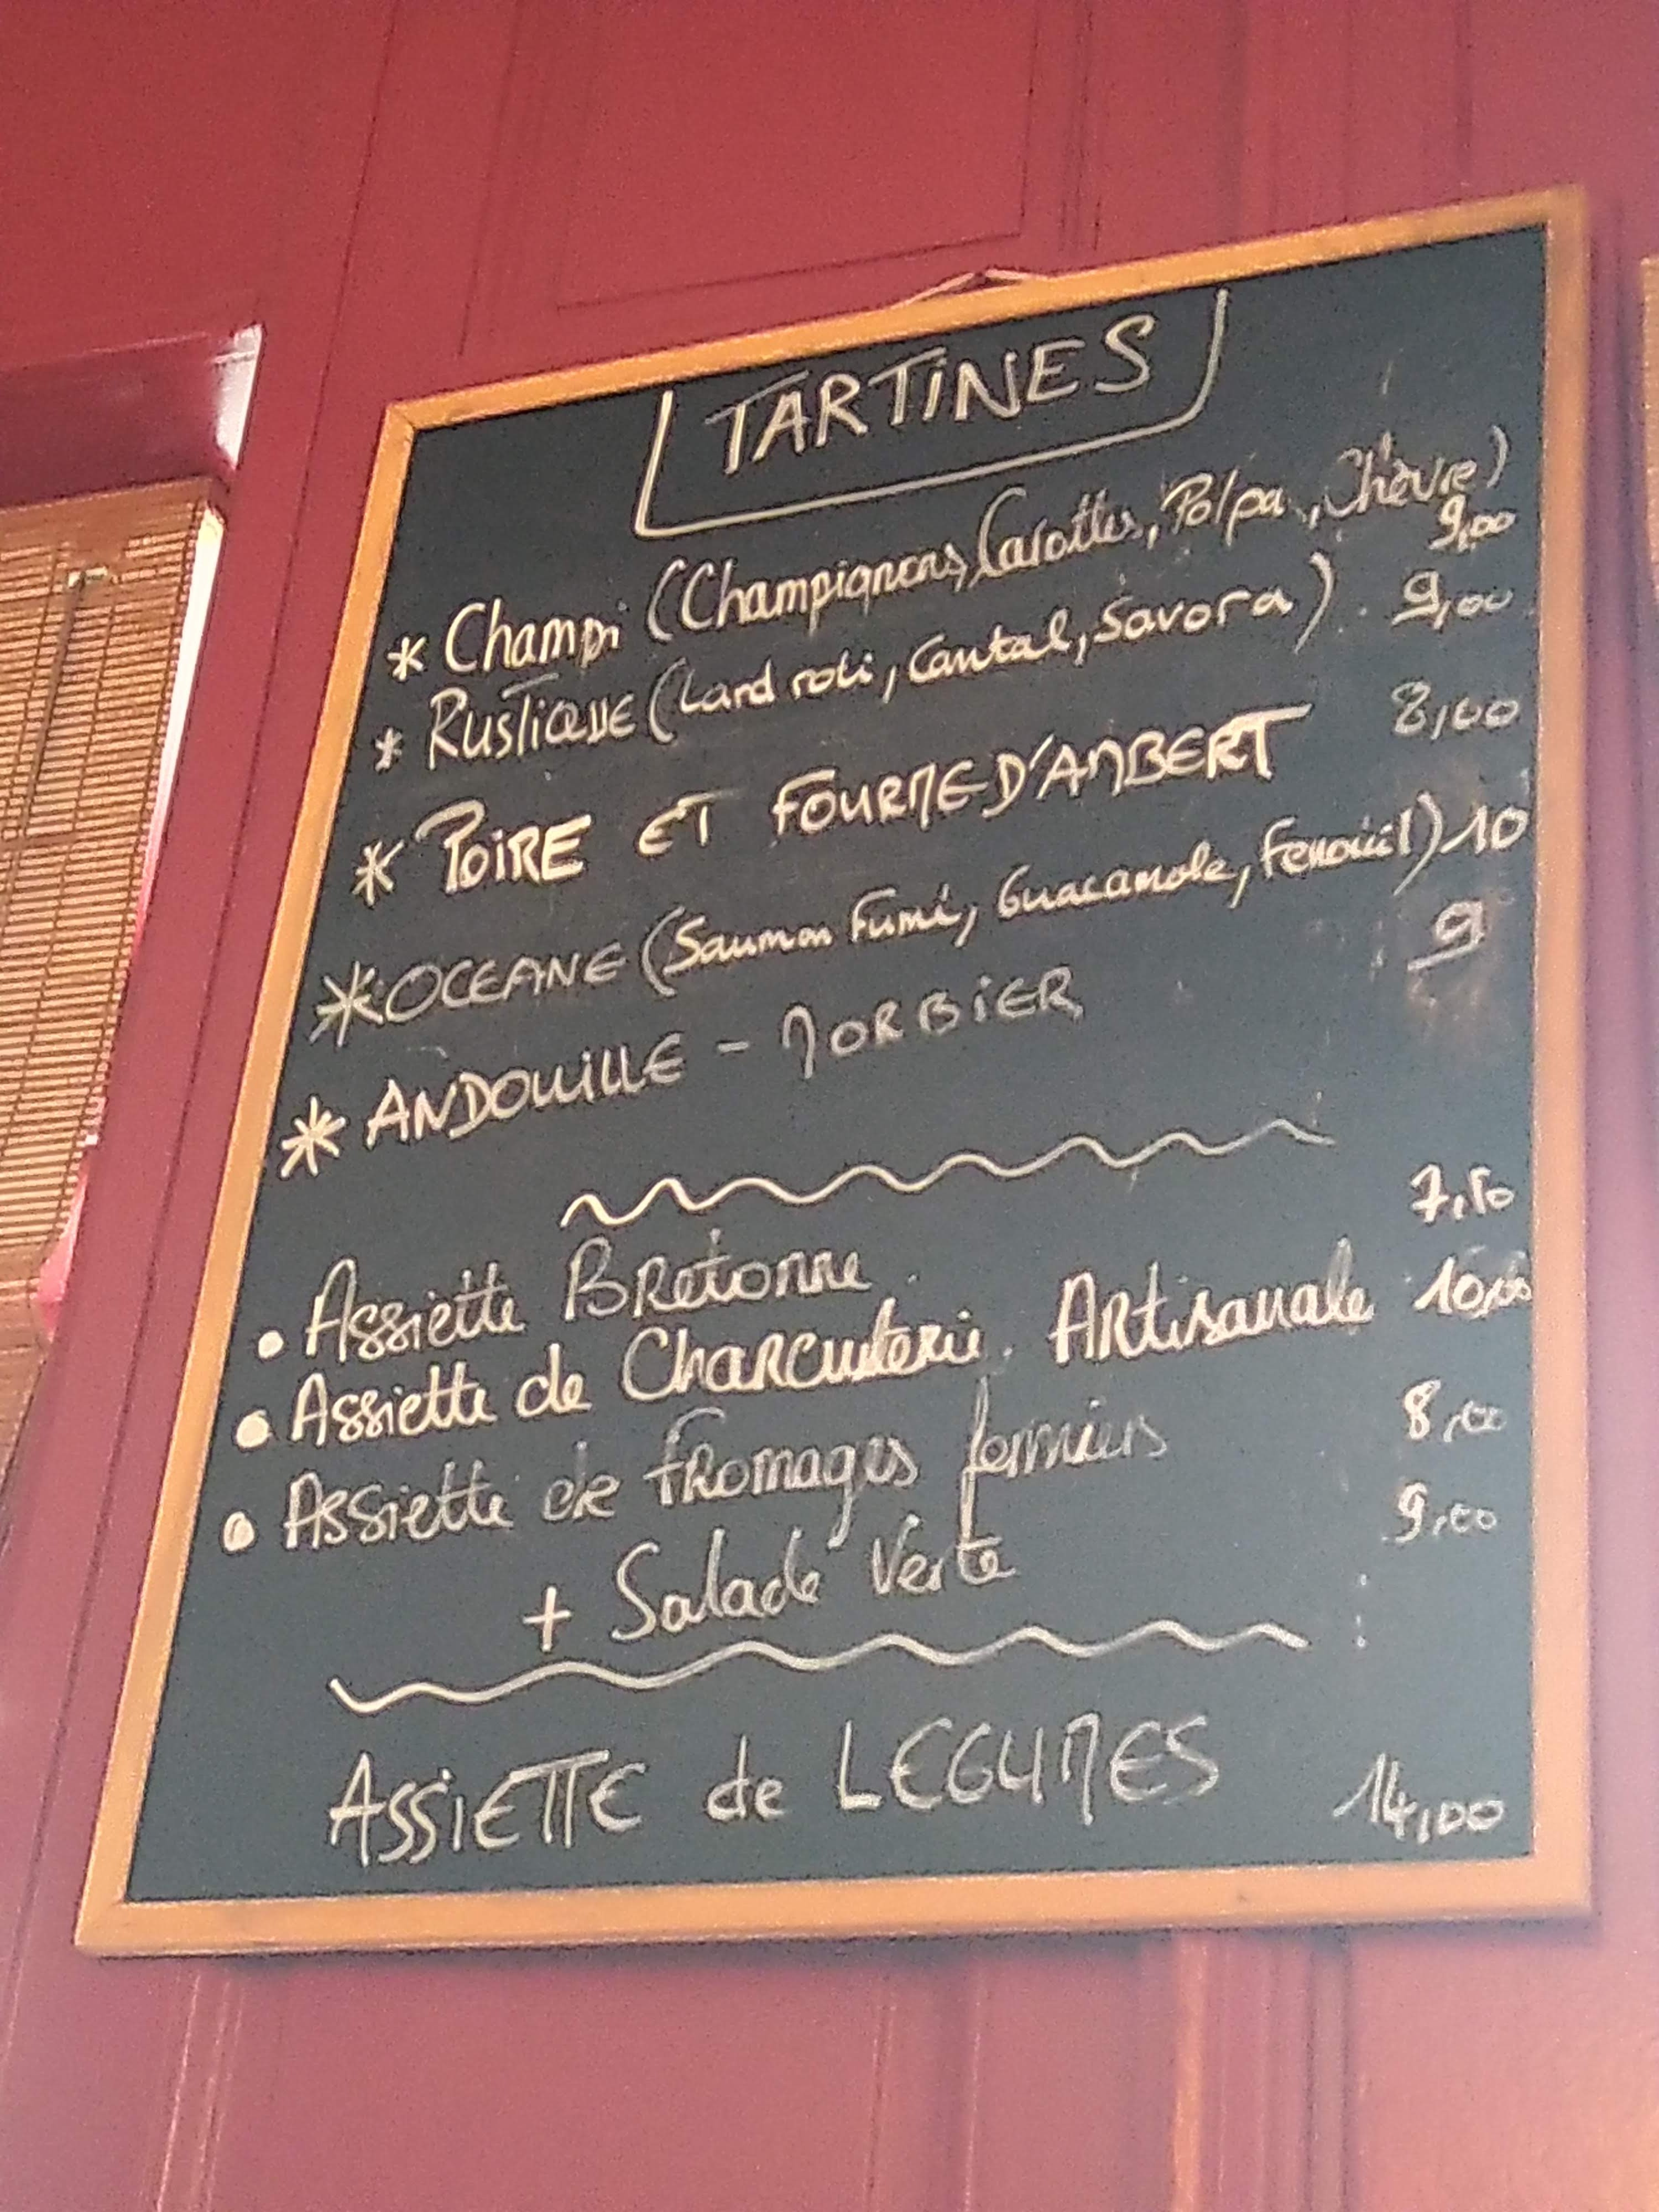 TARTINES
* Champi (Champignons, Carottes, Polpa, Chèvre)
9,00
* RUSTIQUE (Lard roti, Cantal, Savora) 9,00
* POIRE ET FOURME D'AMBERT 8,00
* OCEANE (Saumon Fumé, Guacamole, Fenouil) 10
* ANDOUILLE - MORBIER 9
• Assiette BRetonne 7,50
• Assiette de CHARCuterie ARtisanale 10,00
• Assiette de fRomages fermiers 8,00
+ Salade Verte 9,00
ASSiETTE de LEGUMES 14,00